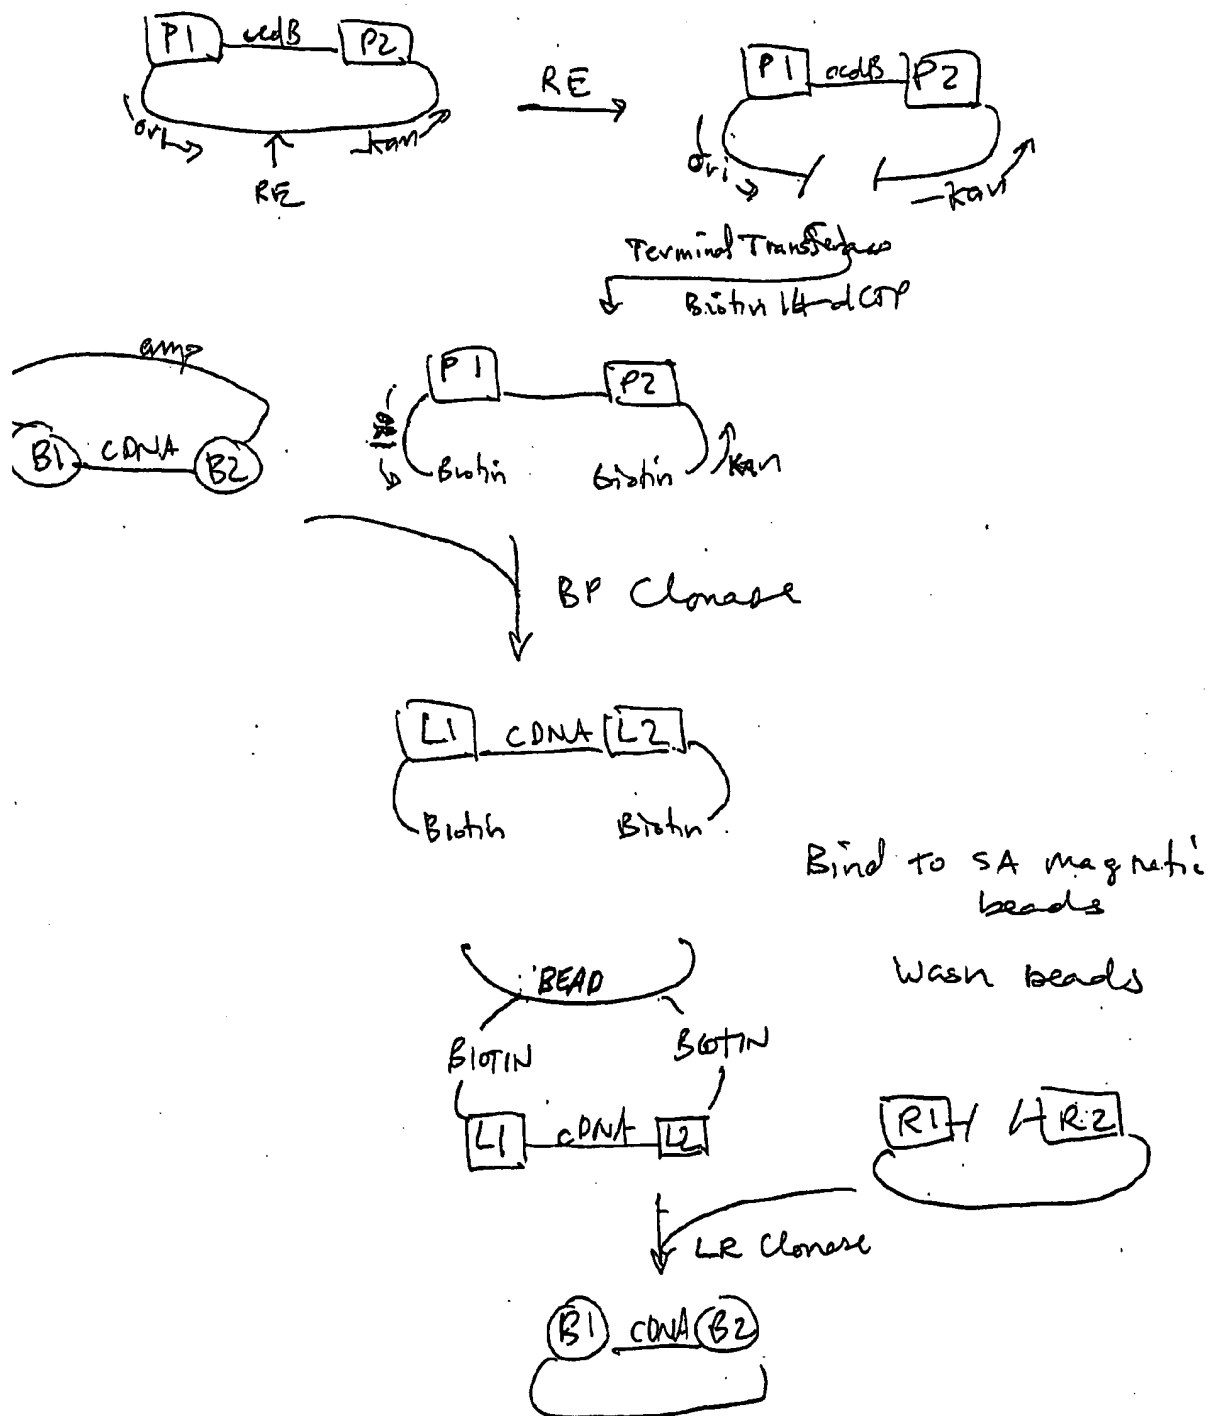 P1 ccdB P2
RE
P1 ccdB P2
ori
kan
RE
ori
kan
Terminal Transferase
Biotin 14-dCTP
amp
P1 P2
B1 CDNA B2
ORI
Biotin Biotin
Kan
BP Clonase
L1 CDNA L2
Biotin Biotin
Bind to SA magnetic
beads
Wash beads
BEAD
BIOTIN BIOTIN
R1 R2
L1 cDNA L2
LR Clonase
B1 CDNA B2